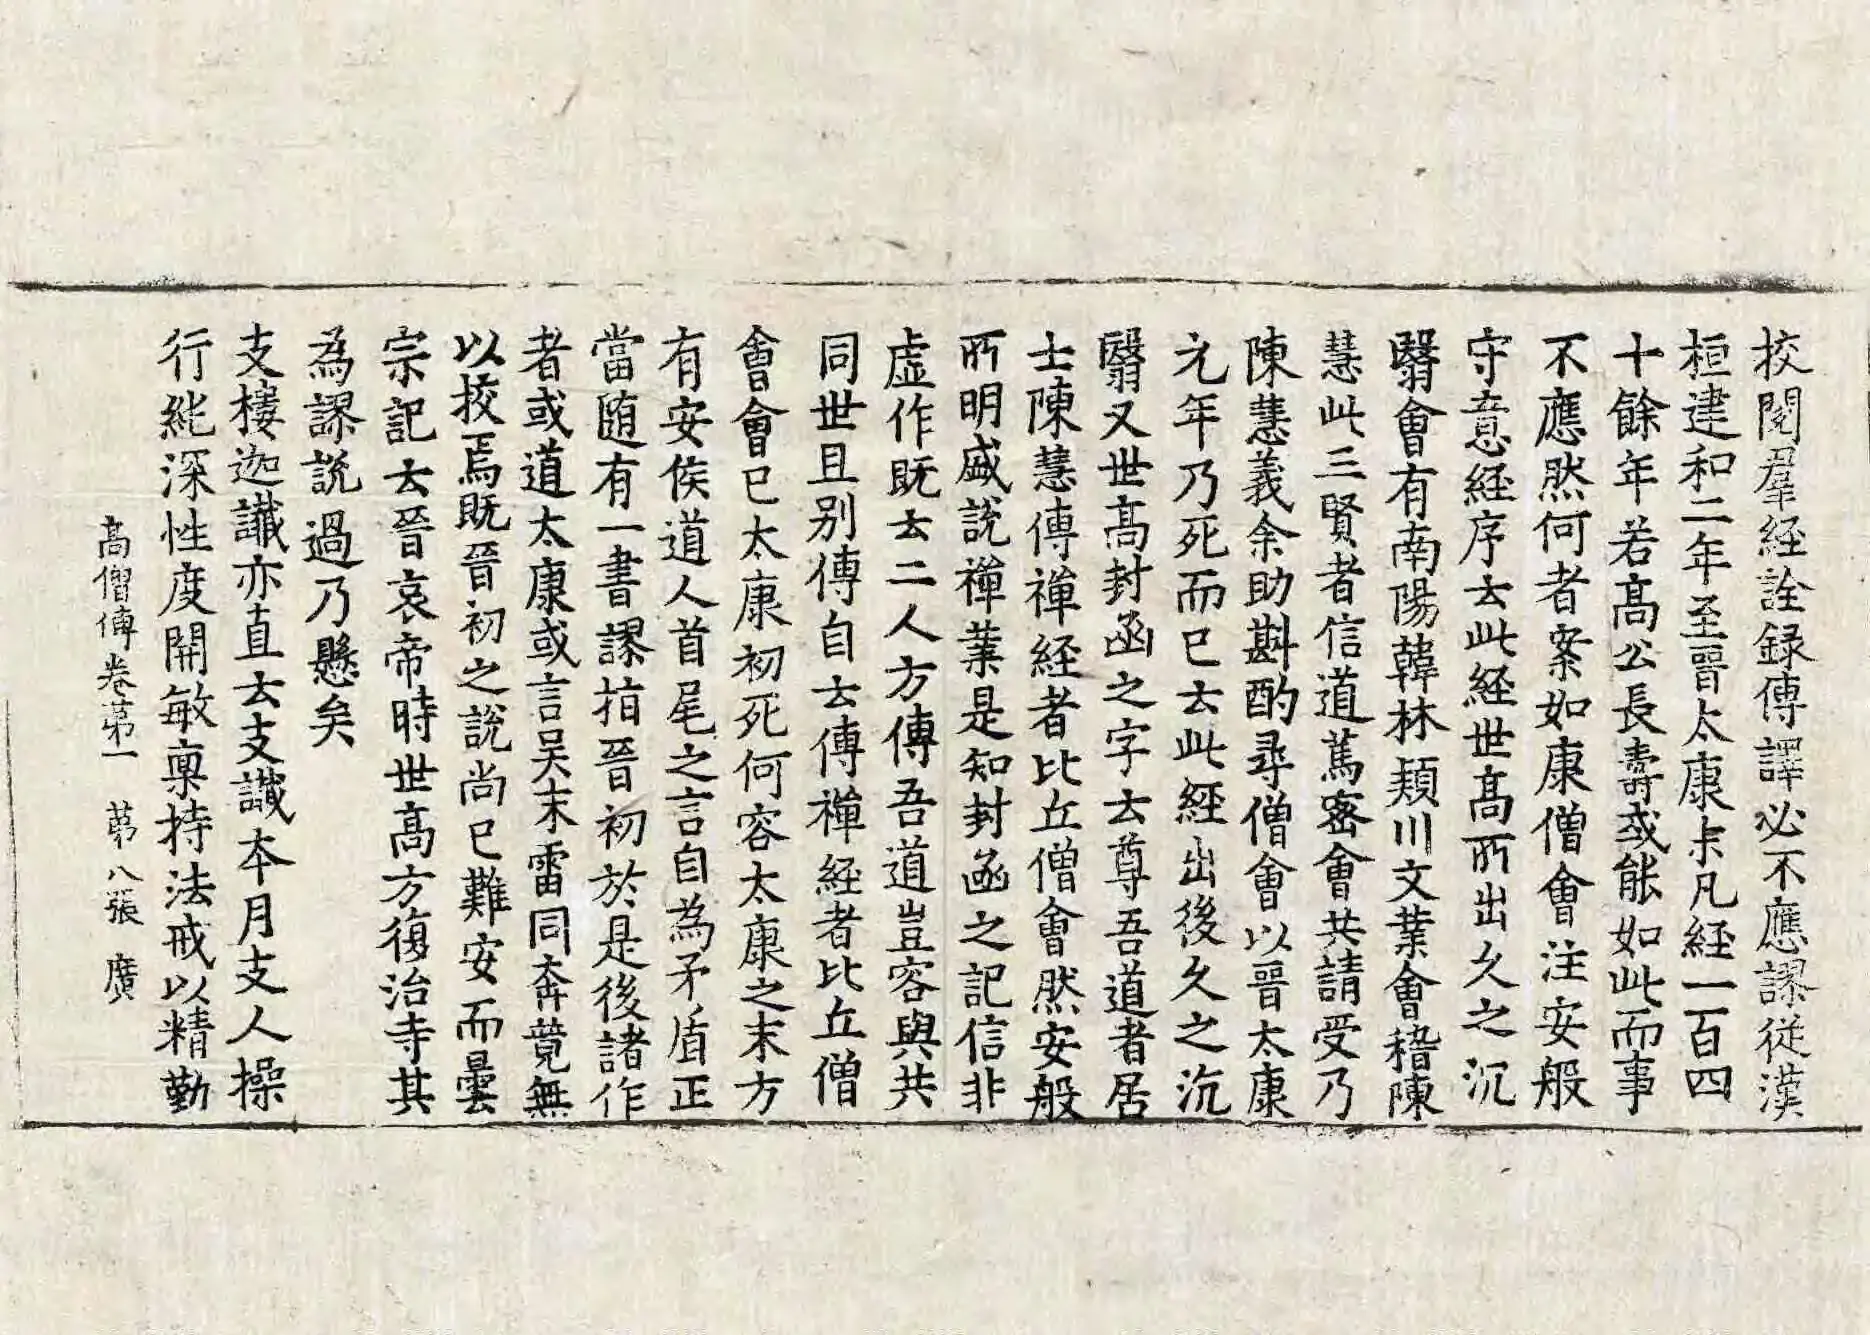 挍閱羣經詮録傳譯必不應謬從漢
桓建和二年至晉太康末凡經一百四
十餘年若髙公長壽或能如此而事
不應然何者案如康僧會注安般
守意經序云此經世髙所出出久之沉
翳會有南陽韓林頴川文業會稽陳
慧此三賢者信道篤密會共請受乃
陳慧義余助斟酌尋僧會以晉太康
元年乃死而已云此經出後久之沉
翳又世髙封函之字云尊吾道者居
士陳慧傳禪經者比丘僧會然安般
所明盛說禪業是知封函之記信非
虛作既云二人方傳吾道豈容與共
同世且别傳自云傳禪經者比丘僧
會會已太康初死何容太康之末方
有安侯道人首尾之言自為矛盾正
當随有一書謬指晉初於是後諸作
者或道太康或言吴末雷同奔競無
以挍焉既晉初之說尚已難安而曇
宗記云晉哀帝時世髙方復治寺其
為謬說過乃懸矣
支樓迦讖亦直云支讖本月支人操
行純深性度開敏稟持法戒以精勤
髙僧傳卷苐一　苐八張　廣